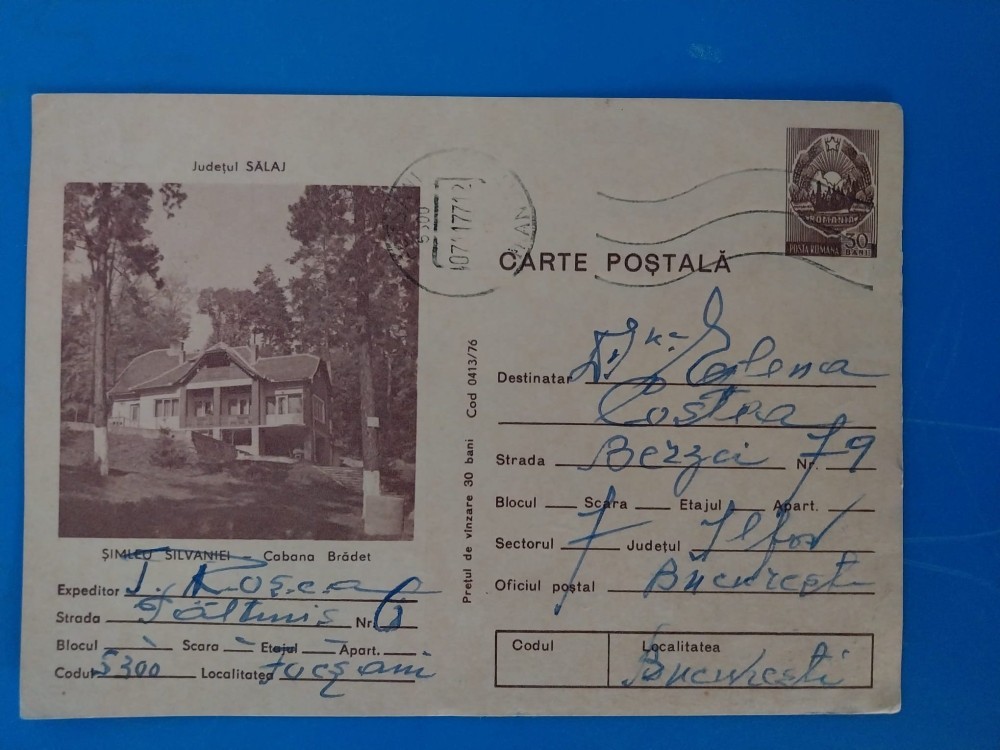 Județul SĂLAJ
ȘIMLEU SILVANIEI - Cabana Brădet
Expeditor T. Roșca
Strada Păltiniș Nr. 6
Blocul - Scara - Etajul - Apart. -
Codul 5300 Localitatea Focșani
5300
07 11 77 12
Prețul de vînzare 30 bani Cod 0413/76
POȘTA ROMÂNĂ 30 BANI
ROMANIA
CARTE POȘTALĂ
Destinatar Elena
Costea
Strada Berzei Nr. 79
Blocul Scara Etajul Apart.
Sectorul 7 Județul Ilfov
Oficiul poștal București
Codul Localitatea
București